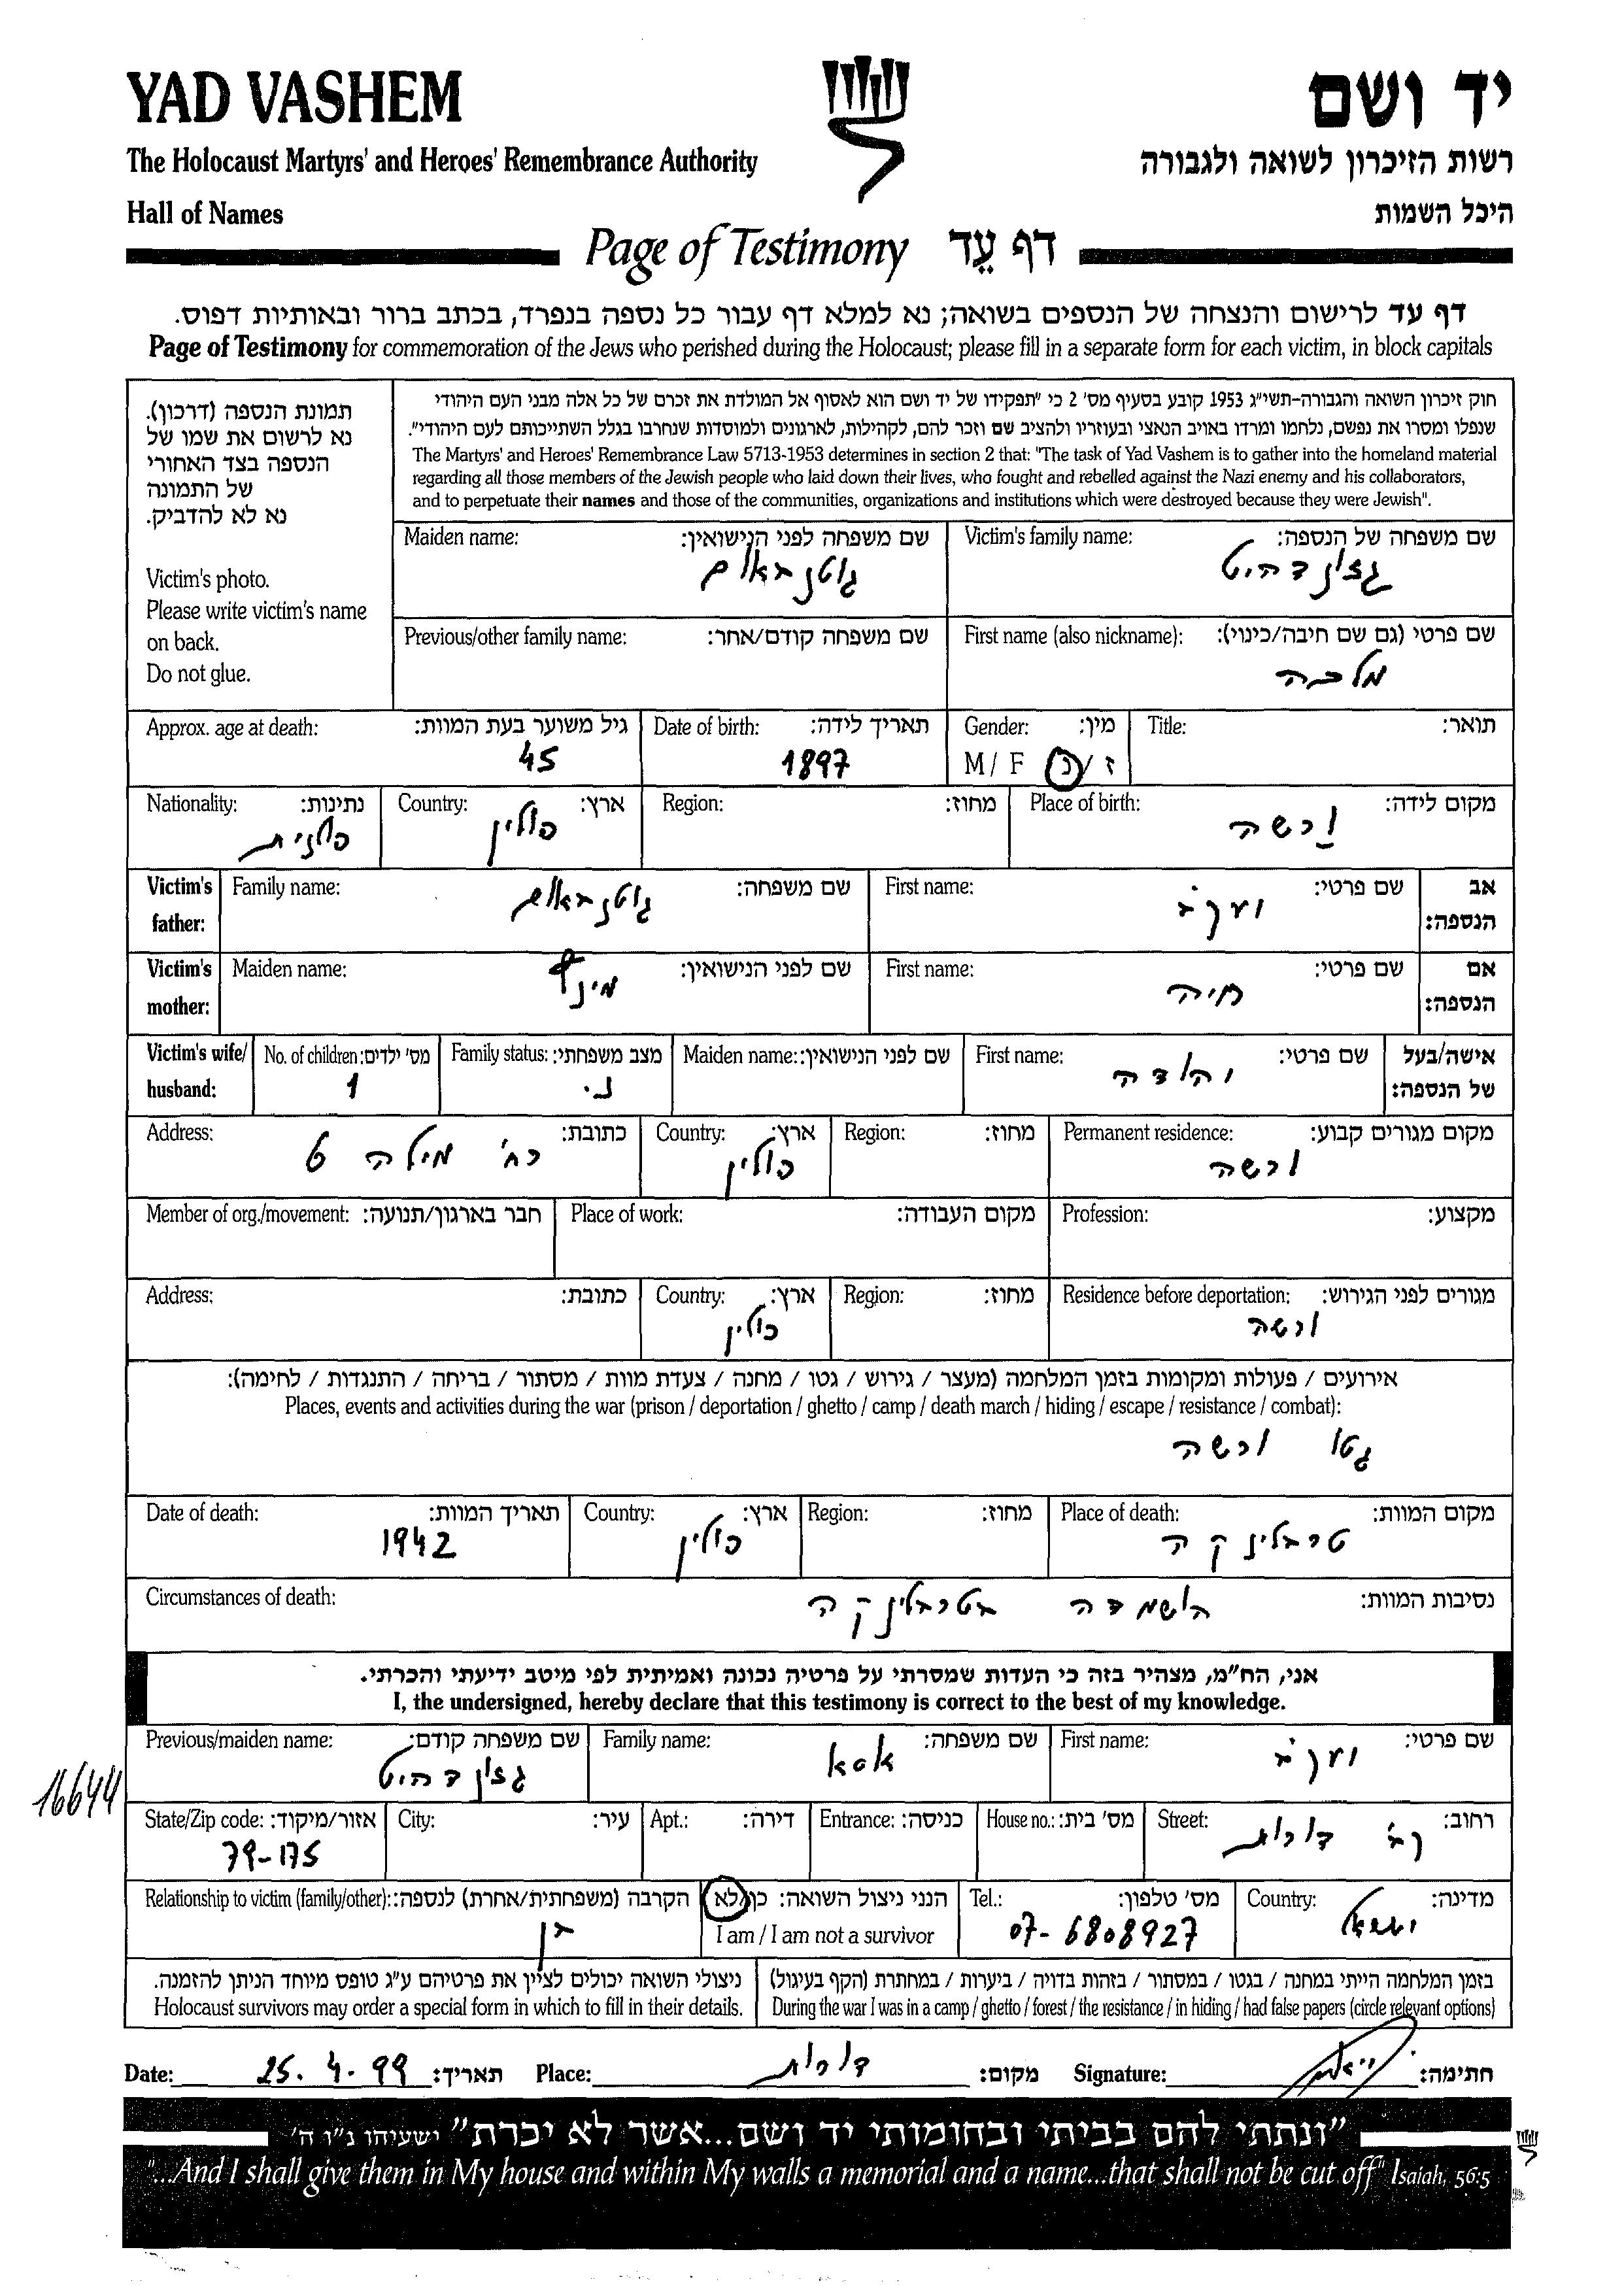 YAD VASHEM
יד ושם
The Holocaust Martyrs' and Heroes' Remembrance Authority
רשות הזיכרון לשואה ולגבורה
Hall of Names
היכל השמות
Page of Testimony דף עֵד
דף עד לרישום והנצחה של הנספים בשואה; נא למלא דף עבור כל נספה בנפרד, בכתב ברור ובאותיות דפוס.
Page of Testimony for commemoration of the Jews who perished during the Holocaust; please fill in a separate form for each victim, in block capitals
תמונת הנספה (דרכון).
נא לרשום את שמו של
הנספה בצד האחורי
של התמונה
נא לא להדביק.
Victim's photo.
Please write victim's name
on back.
Do not glue.
חוק זיכרון השואה והגבורה-תשי"ג 1953 קובע בסעיף מס' 2 כי "תפקידו של יד ושם הוא לאסוף אל המולדת את זכרם של כל אלה מבני העם היהודי
שנפלו ומסרו את נפשם, נלחמו ומרדו באויב הנאצי ובעוזריו ולהציב שם וזכר להם, לקהילות, לארגונים ולמוסדות שנחרבו בגלל השתייכותם לעם היהודי".
The Martyrs' and Heroes' Remembrance Law 5713-1953 determines in section 2 that: "The task of Yad Vashem is to gather into the homeland material
regarding all those members of the Jewish people who laid down their lives, who fought and rebelled against the Nazi enemy and his collaborators,
and to perpetuate their names and those of the communities, organizations and institutions which were destroyed because they were Jewish".
שם משפחה של הנספה: Victim's family name:
גזונדהיט
שם משפחה לפני הנישואין: Maiden name:
גוטנבאום
שם פרטי (גם שם חיבה/כינוי): First name (also nickname):
מלכה
שם משפחה קודם/אחר: Previous/other family name:
תואר: Title:
מין: Gender:
ז / נ M / F
תאריך לידה: Date of birth:
1897
גיל משוער בעת המוות: Approx. age at death:
45
מקום לידה: Place of birth:
ורשה
מחוז: Region:
ארץ: Country:
פולין
נתינות: Nationality:
פולנית
אב הנספה: Victim's father:
שם פרטי: First name:
יעקב
שם משפחה: Family name:
גוטנבאום
אם הנספה: Victim's mother:
שם פרטי: First name:
חיה
שם לפני הנישואין: Maiden name:
אישה/בעל של הנספה: Victim's wife/ husband:
שם פרטי: First name:
יהודה
שם לפני הנישואין: Maiden name:
מצב משפחתי: Family status:
נ.
מס' ילדים: No. of children:
1
מקום מגורים קבוע: Permanent residence:
ורשה
מחוז: Region:
ארץ: Country:
פולין
כתובת: Address:
רח' מילה 6
מקצוע: Profession:
מקום העבודה: Place of work:
חבר בארגון/תנועה: Member of org./movement:
מגורים לפני הגירוש: Residence before deportation:
ורשה
מחוז: Region:
ארץ: Country:
פולין
כתובת: Address:
אירועים / פעולות ומקומות בזמן המלחמה (מעצר / גירוש / גטו / מחנה / צעדת מוות / מסתור / בריחה / התנגדות / לחימה):
Places, events and activities during the war (prison / deportation / ghetto / camp / death march / hiding / escape / resistance / combat):
גטו ורשה
מקום המוות: Place of death:
טרבלינקה
מחוז: Region:
ארץ: Country:
פולין
תאריך המוות: Date of death:
1942
נסיבות המוות: Circumstances of death:
הושמדה בטרבלינקה
אני, הח"מ, מצהיר בזה כי העדות שמסרתי על פרטיה נכונה ואמיתית לפי מיטב ידיעתי והכרתי.
I, the undersigned, hereby declare that this testimony is correct to the best of my knowledge.
שם פרטי: First name:
יעקב
שם משפחה: Family name:
אסא
שם משפחה קודם: Previous/maiden name:
גזונדהיט
16644
רחוב: Street:
קב' דורות
מס' בית: House no.:
כניסה: Entrance:
דירה: Apt.:
עיר: City:
אזור/מיקוד: State/Zip code:
79-175
מדינה: Country:
ישראל
מס' טלפון: Tel.:
07-6808927
הנני ניצול השואה: כן/לא
I am / I am not a survivor
הקרבה (משפחתית/אחרת) לנספה: Relationship to victim (family/other):
בן
בזמן המלחמה הייתי במחנה / בגטו / במסתור / בזהות בדויה / ביערות / במחתרת (הקף בעיגול)
During the war I was in a camp / ghetto / forest / the resistance / in hiding / had false papers (circle relevant options)
ניצולי השואה יכולים לציין את פרטיהם ע"ג טופס מיוחד הניתן להזמנה.
Holocaust survivors may order a special form in which to fill in their details.
Date: 25.4.99 תאריך: Place: דורות מקום: Signature: חתימה:
"ונתתי להם בביתי ובחומותי יד ושם...אשר לא יכרת" ישעיהו נ"ו ה'
"...And I shall give them in My house and within My walls a memorial and a name...that shall not be cut off" Isaiah, 56:5